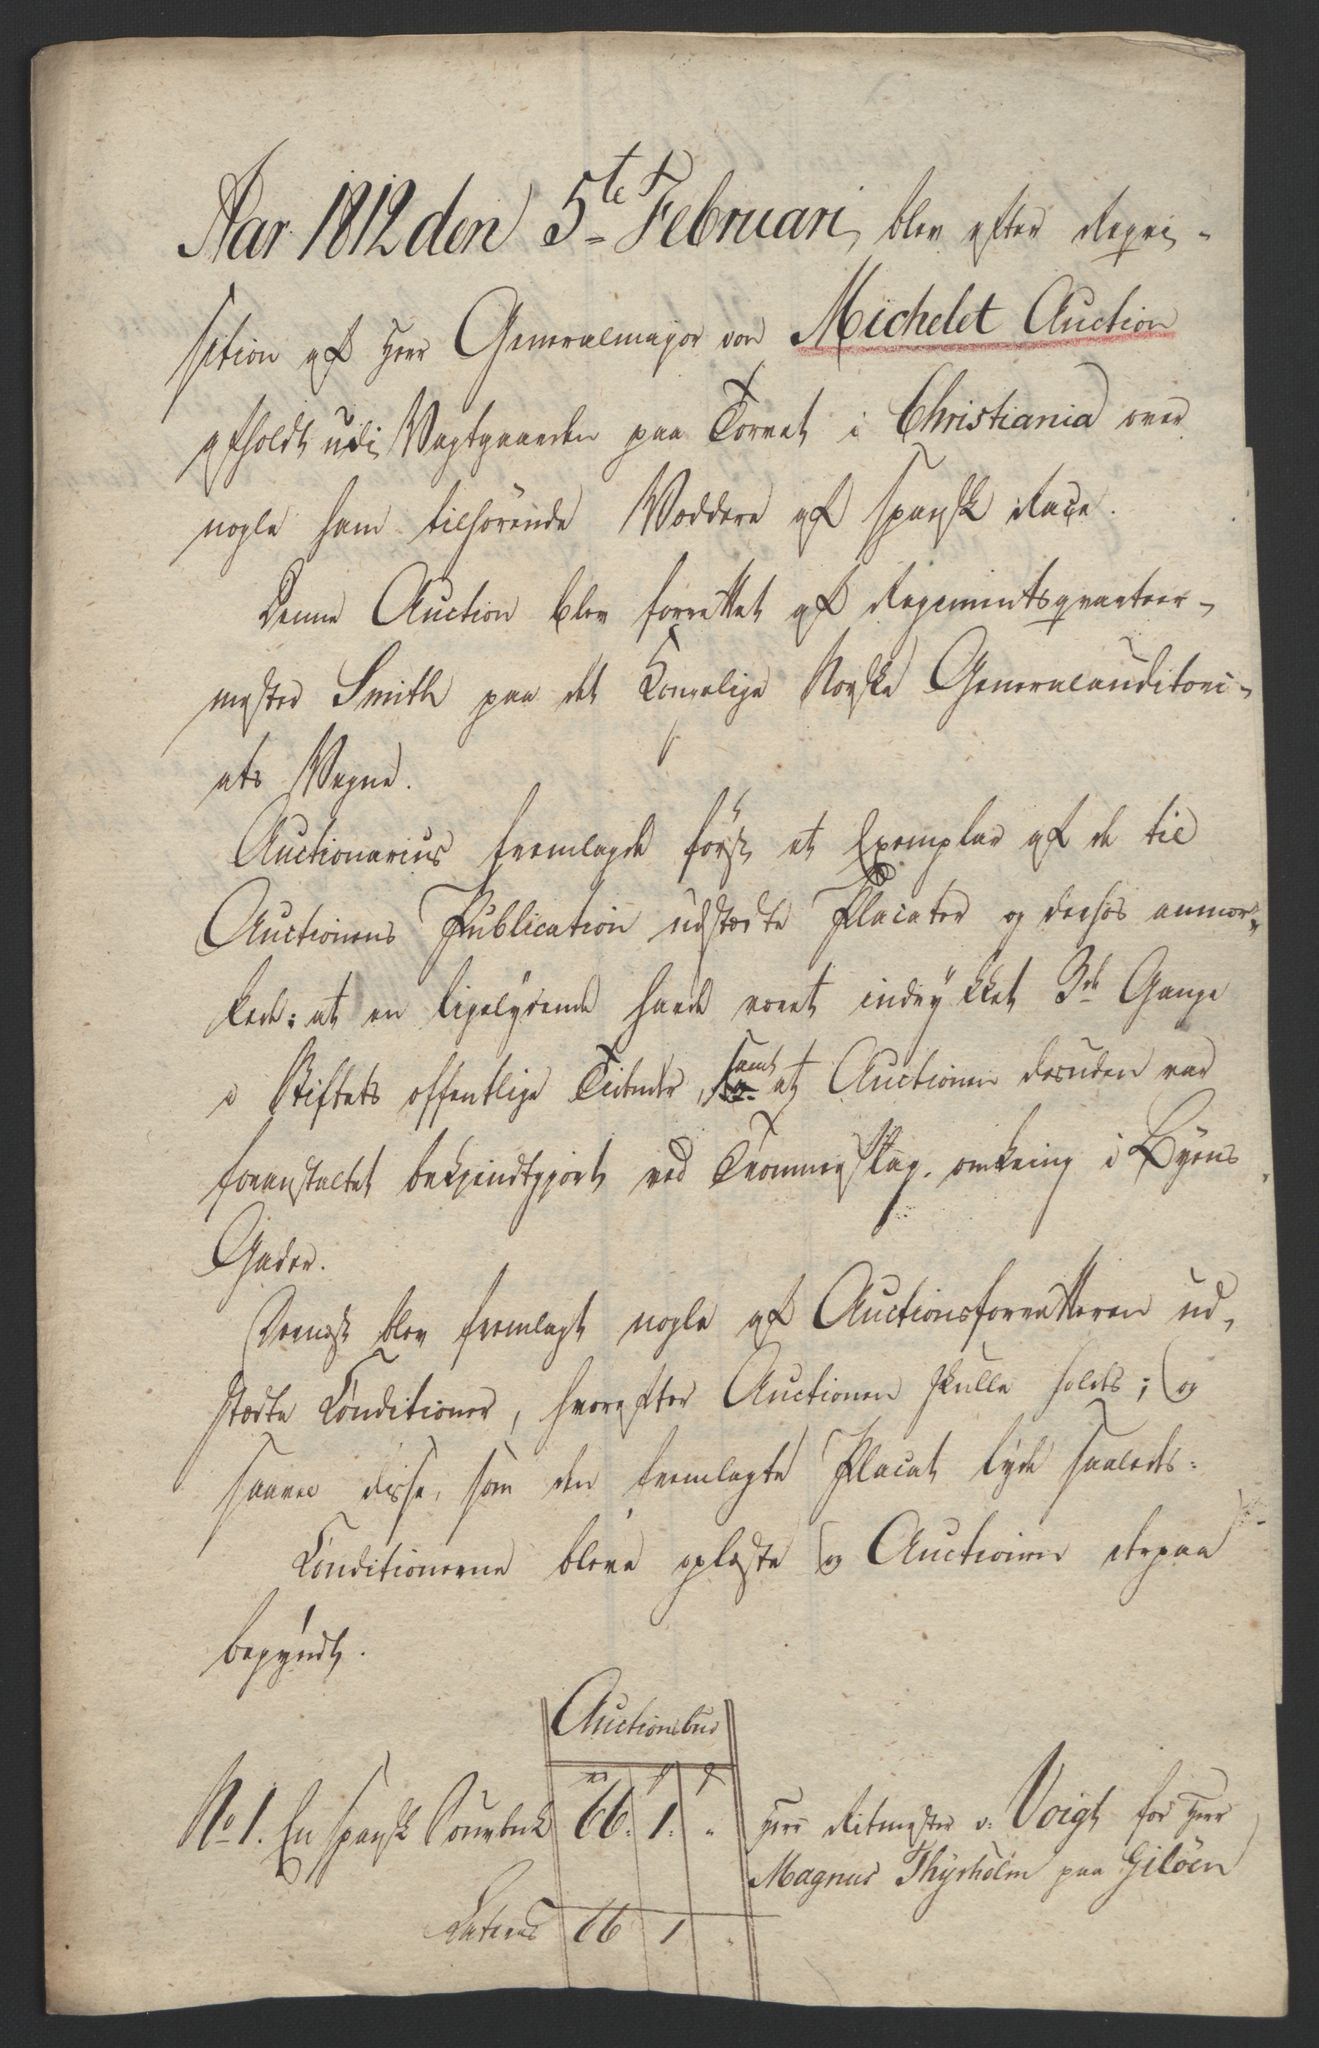 Aar 1812 den 5te Februari, blev efter Reqvi-
sition af Herr Generalmajor von Michelet Auction
afholdt udi Vagtgaarden paa Torvet i Christiania over
nogle ham tilhørende Væddere af spansk Race.
Denne Auction blev forrettet af Regimentsqvarteer-
mester Smith paa det Kongelige Norske Generalauditori-
ats Vegne.
Auctionarius fremlagde først et Exemplar af de til
Auctionens Publication udstædte Placater og derhos anmær-
kede: at en ligelydende havde været indrykket 3de Gange
i Stiftets offentlige Tidender, samt at Auctionen desuden var
foranstaltet bekjendtgjort ved Trommeslag omkring i Byens
Gader.
Dernæst blev fremlagt nogle af Auctionsforretteren ud-
stædte Conditioner, hvorefter Auctionen skulle holdes; og
saavel disse, som den fremlagte Placat lyde saaledes:
Conditionerne bleve oplæste og Auctionen derpaa
begyndt.
Auctionsbud
No 1. En spansk Souebuk 66. 1. " Herr Ritmester v: Voigt for Herr
Magnus Thyrholm paa Gilöen
Lateris 66 1 "